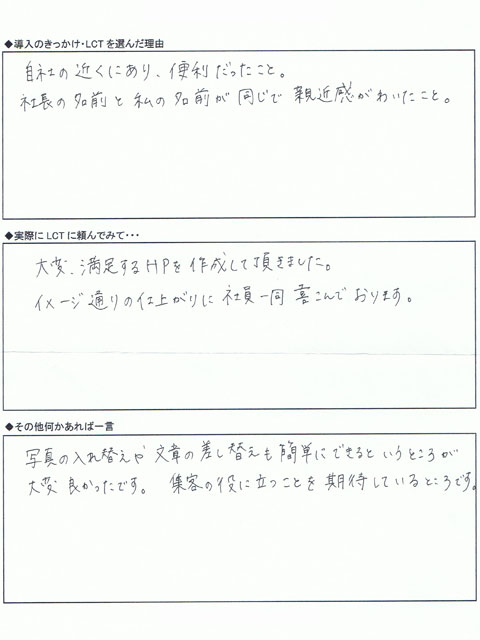 ◆導入のきっかけ・LCTを選んだ理由
自社の近くにあり、便利だったこと。
社長の名前と私の名前が同じで親近感がわいたこと。
◆実際にLCTに頼んでみて・・・
大変、満足するHPを作成して頂きました。
イメージ通りの仕上がりに社員一同喜こんでおります。
◆その他何かあれば一言
写真の入れ替えや文章の差し替えも簡単にできるというところが
大変良かったです。 集客の役に立つことを期待しているところです。